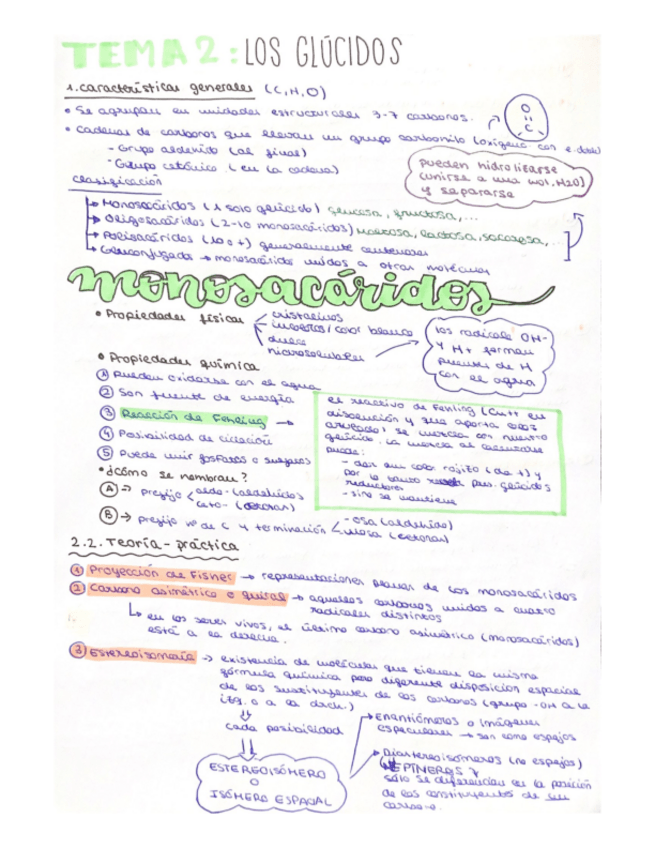 TEMA 2: LOS GLÚCIDOS
1. características generales (C,H,O)
• Se agrupan en unidades estructurales 3-7 carbonos.
• Cadenas de carbonos que llevan un grupo carbonilo (oxígeno con e. doble)
- Grupo aldehído (al final)
- Grupo cetónico (en la cadena)
O
C
pueden hidrolizarse
(unirse a una mol. H2O)
y separarse
Clasificación
Monosacáridos (1 solo glúcido) glucosa, fructosa,...
Oligosacáridos (2-10 monosacáridos) maltosa, lactosa, sacarosa,...
Polisacáridos (10 o +) generalmente centenares
Glucoconjugados → monosacáridos unidos a otras moléculas
monosacáridos
• Propiedades físicas
cristalinos
incoloros/color blanco
dulces
hidrosolubles
los radicales OH-
y H+ forman
puentes de H
con el agua
• Propiedades química
① Pueden oxidarse con el agua
② Son fuente de energía
③ Reacción de Fehling →
④ Posibilidad de ciclación
⑤ Puede unir fosfatos o sulfatos
el reactivo de Fehling (Cu++ en
disolución y que aporta color
azulado) se mezcla con nuestro
glúcido. La mezcla al calentarse
puede:
- dar un color rojizo (de +) y
por lo tanto pres. glúcidos
reductores
- sino se mantiene
• ¿Cómo se nombran?
Ⓐ → prefijo
aldo- (aldehídos)
ceto- (cetonas)
Ⓑ → prefijo nº de C y terminación
-osa (aldehído)
-ulosa (cetonas)
2.2. Teoría-práctica
① Proyección de Fisher → representaciones planas de los monosacáridos
② Carbono asimétrico o quiral → aquellos carbonos unidos a cuatro
radicales distintos
en los seres vivos, el último carbono asimétrico (monosacáridos)
está a la derecha.
③ Estereoisomería → existencia de moléculas que tienen la misma
fórmula química pero diferente disposición espacial
de los sustituyentes de los carbonos (grupo -OH a la
izq. o a la drch.)
cada posibilidad
ESTEREOISÓMERO
O
ISÓMERO ESPACIAL
Enantiómeros o Imágenes
especulares → son como espejos
Diastereoisómeros (no espejos)
EPÍMEROS
sólo se diferencian en la posición
de los constituyentes de un
carbono.